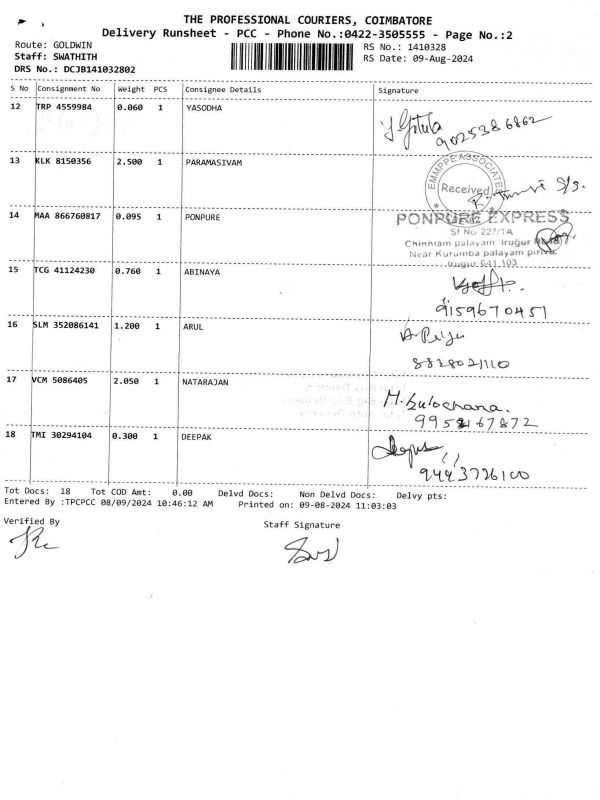 THE PROFESSIONAL COURIERS, COIMBATORE
Delivery Runsheet - PCC - Phone No.:0422-3505555 - Page No.:2
Route: GOLDWIN RS No.: 1410328
Staff: SWATHITH RS Date: 09-Aug-2024
DRS No.: DCJB141032802
S No Consignment No Weight PCS Consignee Details Signature
12 TRP 4559984 0.060 1 YASODHA
9025386862
13 KLK 8150356 2.500 1 PARAMASIVAM
EMMPPE ASSOCIATES
Received
14 MAA 866760817 0.095 1 PONPURE
PONPURE EXPRESS
Sf No 227/1A
Chinniam palayam Irugur Road
Near Kurumba palayam pirivu,
Irugur 641 103
15 TCG 41124230 0.760 1 ABINAYA
9159670451
16 SLM 352086141 1.200 1 ARUL
A. Priya
17 VCM 5086405 2.050 1 NATARAJAN
M. Sulochana.
18 TMI 30294104 0.300 1 DEEPAK
9443726100
Tot Docs: 18 Tot COD Amt: 0.00 Delvd Docs: Non Delvd Docs: Delvy pts:
Entered By :TPCPCC 08/09/2024 10:46:12 AM Printed on: 09-08-2024 11:03:03
Verified By Staff Signature